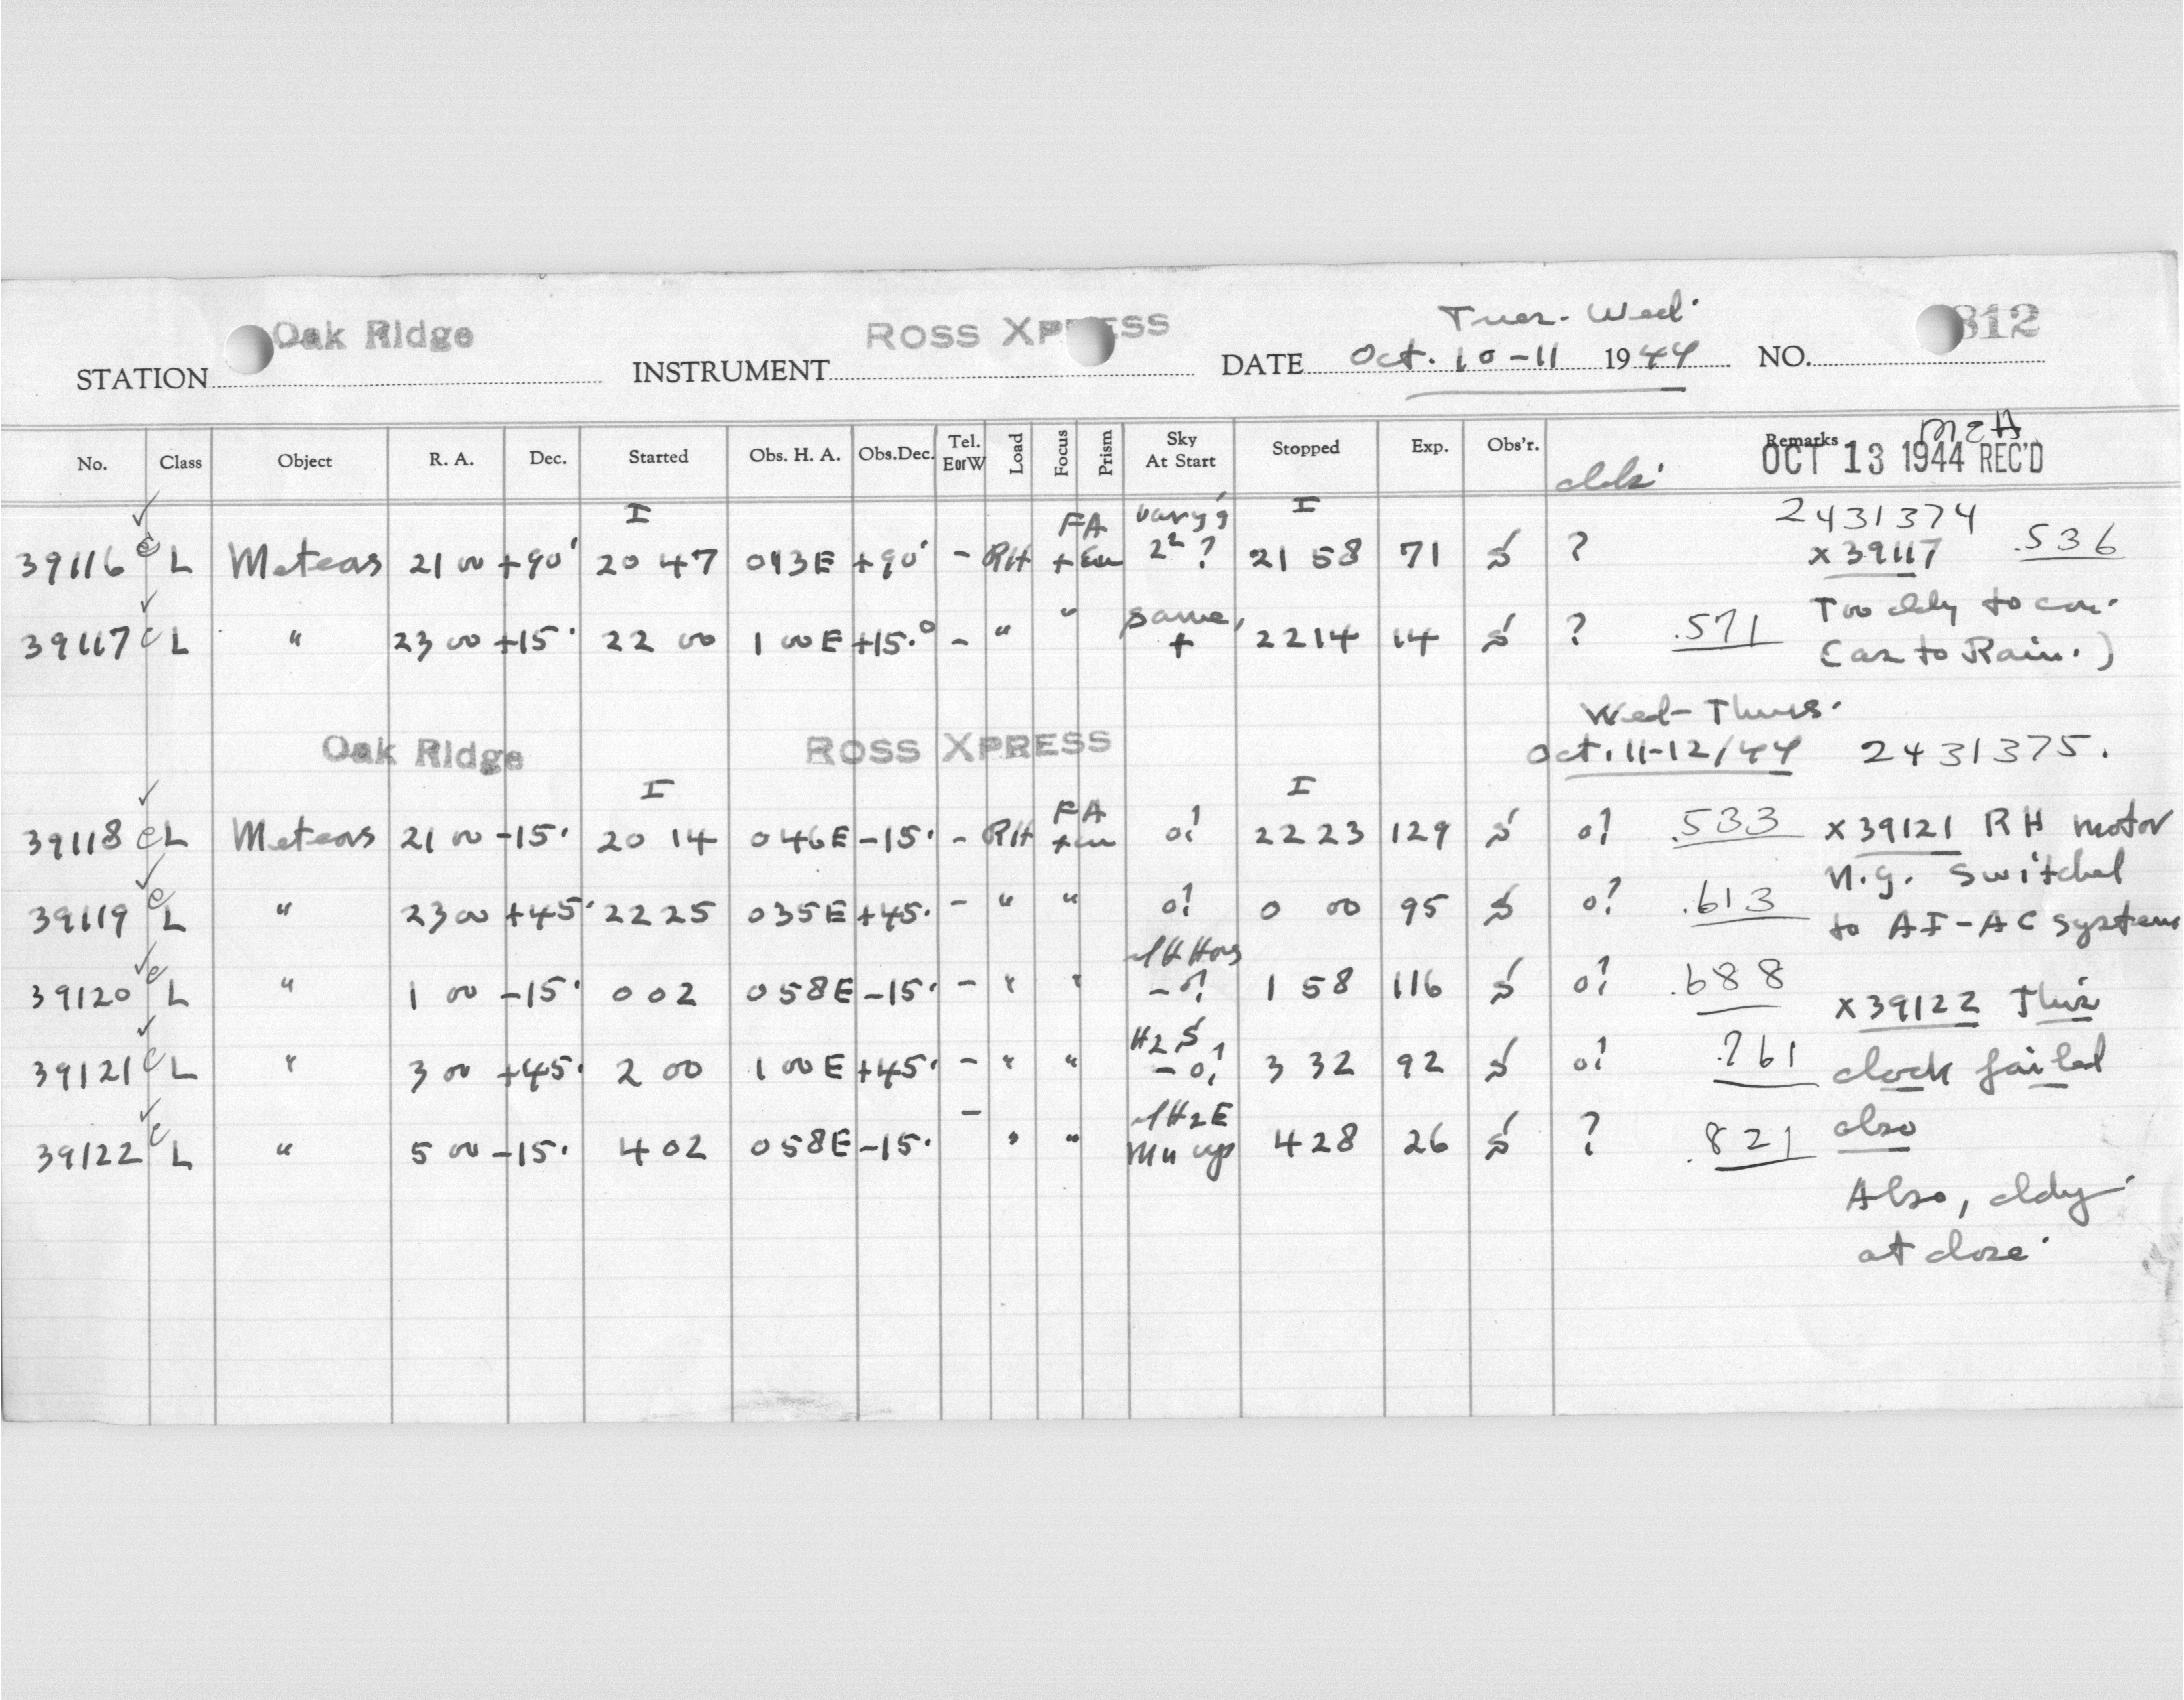 Oak Ridge ROSS XPRESS Tues. - Wed. 812
STATION INSTRUMENT DATE Oct. 10-11 1944 NO.
No. Class Object R. A. Dec. Started Obs. H. A. Obs.Dec. Tel. EorW Load Focus Prism Sky At Start Stopped Exp. Obs'r. Remarks
OCT 13 1944 REC'D
I I 2431374
39116 e L Meteors 21 00 +90° 20 47 013E +90° - RH FA 2² ? 21 58 71 S ? x 39117 .536
39117 e L " 23 00 +15° 22 00 1 00 E +15.° - " " same, + 22 14 14 S ? .571 Too cldy to con.
(as to Rain.)
Wed - Thurs.
Oak Ridge ROSS XPRESS Oct. 11-12/44 2431375.
I I
39118 e L Meteors 21 00 -15° 20 14 046E -15° - RH FA 0? 22 23 129 S 0? .533 x 39121 RH motor
n.g. Switched
39119 e L " 23 00 +45° 22 25 035E +45° - " " 0? 0 00 95 S 0? .613 to AI-AC system
39120 e L " 1 00 -15° 0 02 058E -15° - " " - 0? 1 58 116 S 0? .688 x 39122 This
39121 e L " 3 00 +45° 2 00 1 00 E +45° - " " - 0? 3 32 92 S 0? .761 clock failed
39122 e L " 5 00 -15° 4 02 058E -15° - " " Mn up 4 28 26 S ? .821 also
Also, cldy
at close.